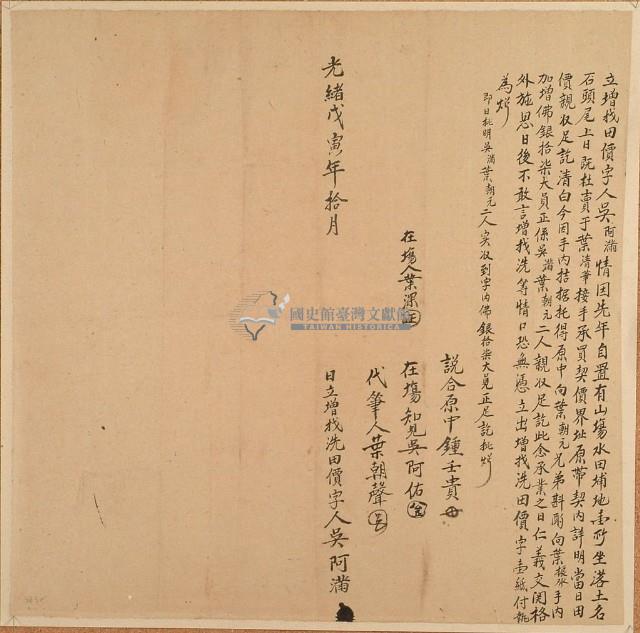 立增找田價字人吳阿滿情因先年自置有山塲水田埔地壹所坐落土名
石頭尾上日既杜賣于葉清華接手承買契價界址原帶契內詳明當日田
價親收足訖清白今因手內拮据托得原中向葉朝元兄弟斟酌向葉 手內
加增佛銀拾柒大員正係吳滿葉朝元二人親收足訖此念承業之日仁義交関格
外施恩日後不敢言增找洗等情口恐無憑立出增找洗田價字壹紙付執
為炤
即日批明吳滿葉朝元二人实收到字內佛銀拾柒大員正足訖批炤
說合原中鍾壬貴
在塲知見吳阿佑
代筆人葉朝聲
在塲人葉深
光緒戊寅年拾月
日立增找洗田價字人吳阿滿
國史館臺灣文獻館
TAIWAN HISTORICA